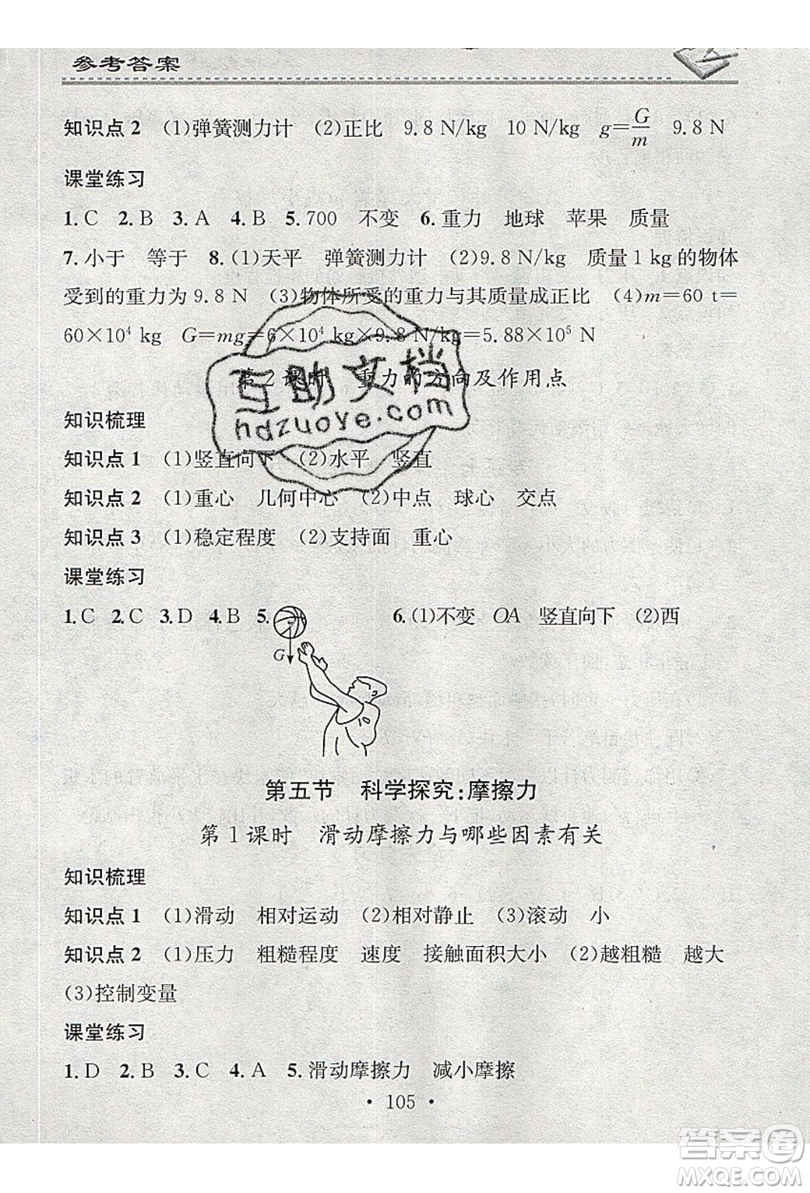 参考答案
知识点 2 (1)弹簧测力计 (2)正比 9.8 N/kg 10 N/kg g=G/m 9.8 N
课堂练习
1.C 2.B 3.A 4.B 5.700 不变 6.重力 地球 苹果 质量
7.小于 等于 8.(1)天平 弹簧测力计 (2)9.8 N/kg 质量 1 kg 的物体
受到的重力为 9.8 N (3)物体所受的重力与其质量成正比 (4)m=60 t=
60×10⁴ kg G=mg=6×10⁴ kg×9.8 N/kg=5.88×10⁵ N
第 2 课时 重力的方向及作用点
互助文档
hdzuoye.com
知识梳理
知识点 1 (1)竖直向下 (2)水平 竖直
知识点 2 (1)重心 几何中心 (2)中点 球心 交点
知识点 3 (1)稳定程度 (2)支持面 重心
课堂练习
1.C 2.C 3.D 4.B 5. 6.(1)不变 OA 竖直向下 (2)西
G
第五节 科学探究:摩擦力
第 1 课时 滑动摩擦力与哪些因素有关
知识梳理
知识点 1 (1)滑动 相对运动 (2)相对静止 (3)滚动 小
知识点 2 (1)压力 粗糙程度 速度 接触面积大小 (2)越粗糙 越大
(3)控制变量
课堂练习
1.D 2.B 3.C 4.A 5.滑动摩擦力 减小摩擦
· 105 ·
答案圈
MXQE.COM